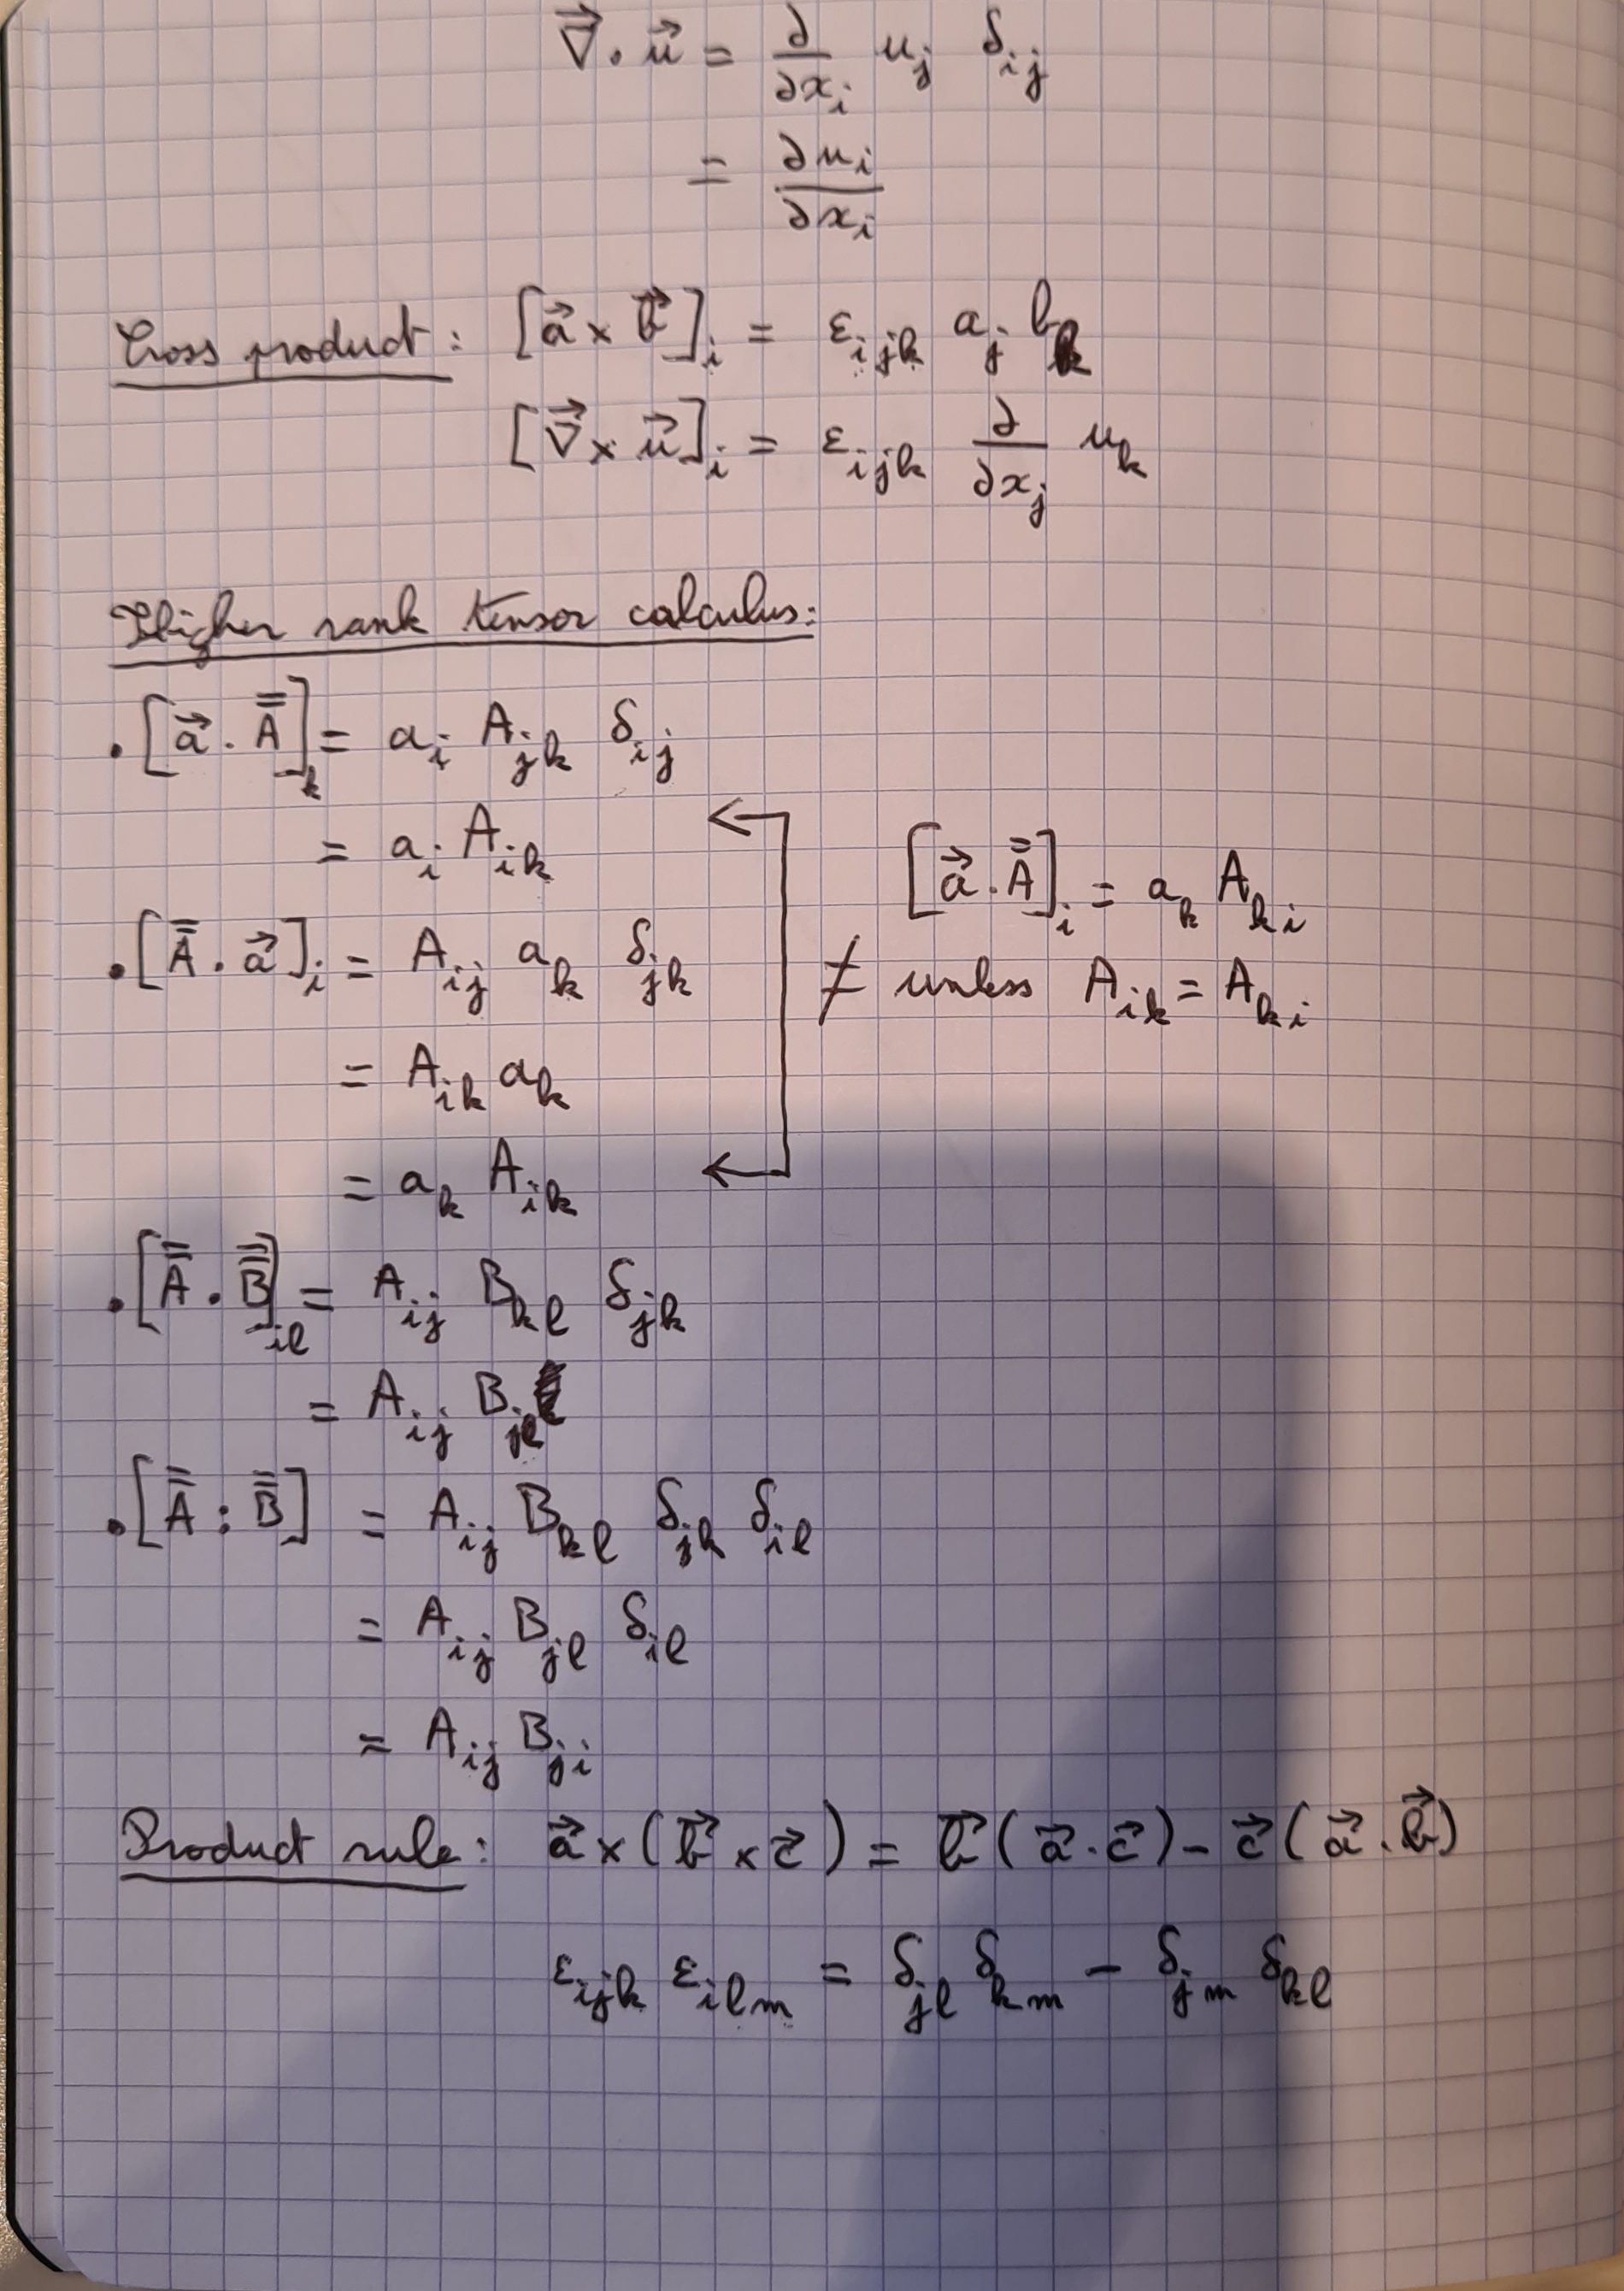 $\vec{\nabla} \cdot \vec{u} = \frac{\partial}{\partial x_i} u_j \delta_{ij}$
$= \frac{\partial u_i}{\partial x_i}$
Cross product: $[\vec{a} \times \vec{b}]_i = \varepsilon_{ijk} a_j b_k$
$[\vec{\nabla} \times \vec{u}]_i = \varepsilon_{ijk} \frac{\partial}{\partial x_j} u_k$
Higher rank tensor calculus:
• $[\vec{a} \cdot \bar{\bar{A}}]_k = a_i A_{jk} \delta_{ij}$
$= a_i A_{ik}$
$[\vec{a} \cdot \bar{\bar{A}}]_i = a_k A_{ki}$
• $[\bar{\bar{A}} \cdot \vec{a}]_i = A_{ij} a_k \delta_{jk}$
$\neq$ unless $A_{ik} = A_{ki}$
$= A_{ik} a_k$
$= a_k A_{ik}$
• $[\bar{\bar{A}} \cdot \bar{\bar{B}}]_{il} = A_{ij} B_{kl} \delta_{jk}$
$= A_{ij} B_{jl}$
• $[\bar{\bar{A}} : \bar{\bar{B}}] = A_{ij} B_{kl} \delta_{jk} \delta_{il}$
$= A_{ij} B_{jl} \delta_{il}$
$= A_{ij} B_{ji}$
Product rule: $\vec{a} \times (\vec{b} \times \vec{c}) = \vec{b} (\vec{a} \cdot \vec{c}) - \vec{c} (\vec{a} \cdot \vec{b})$
$\varepsilon_{ijk} \varepsilon_{ilm} = \delta_{jl} \delta_{km} - \delta_{jm} \delta_{kl}$